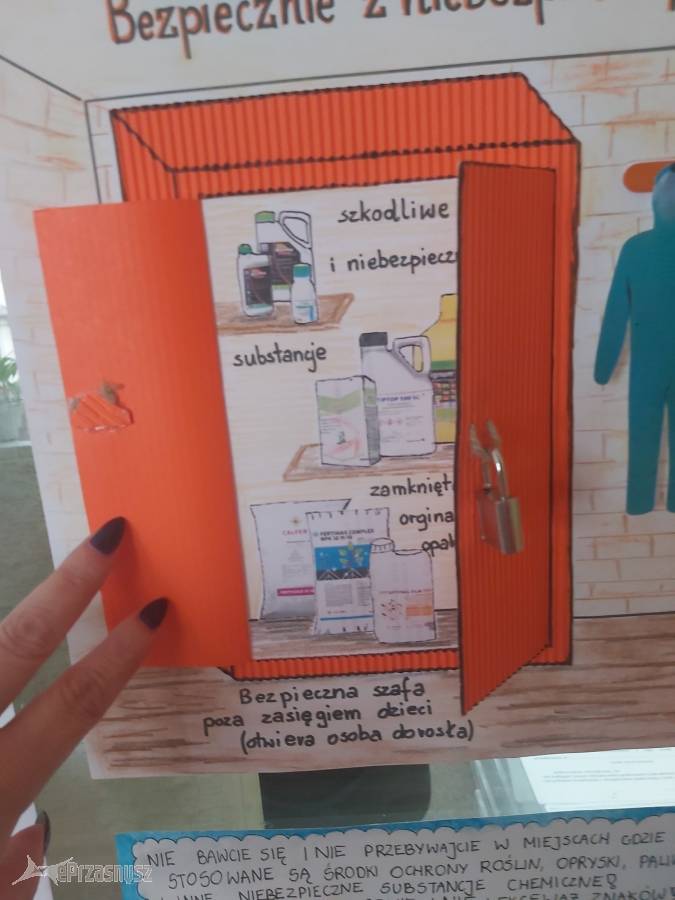 Bezpiecznie z niebezp
szkodliwe
i niebezpiecz
substancje
TIPTOP 500 SC
zamknięt
orgina
opak
CALFER
FERTIMAX COMPLEX
NPK
Bezpieczna szafa
poza zasięgiem dzieci
(otwiera osoba dorosła)
NIE BAWCIE SIĘ I NIE PRZEBYWAJCIE W MIEJSCACH GDZIE
STOSOWANE SĄ ŚRODKI OCHRONY ROŚLIN, OPRYSKI, PALI
I INNE NIEBEZPIECZNE SUBSTANCJE CHEMICZNE!
ZNAKÓW
ePrzasnysz